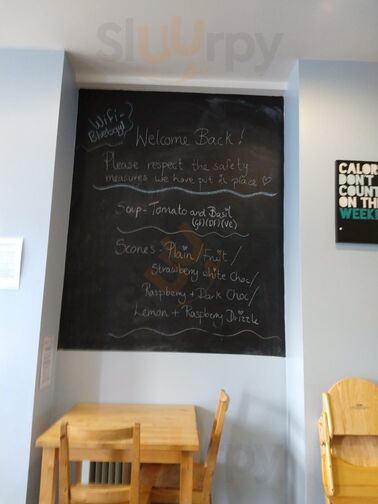 Slurpy
Wifi-
Welcome Back!
Please respect the safety
measures we have put in place ♡
Soup - Tomato and Basil
(GF)(DF)(VE)
Scones - Plain/Fruit/
Strawberry white choc/
Raspberry + Dark Choc/
Lemon + Raspberry Drizzle
CALOR
DON'T
COUNT
ON THE
WEEKE